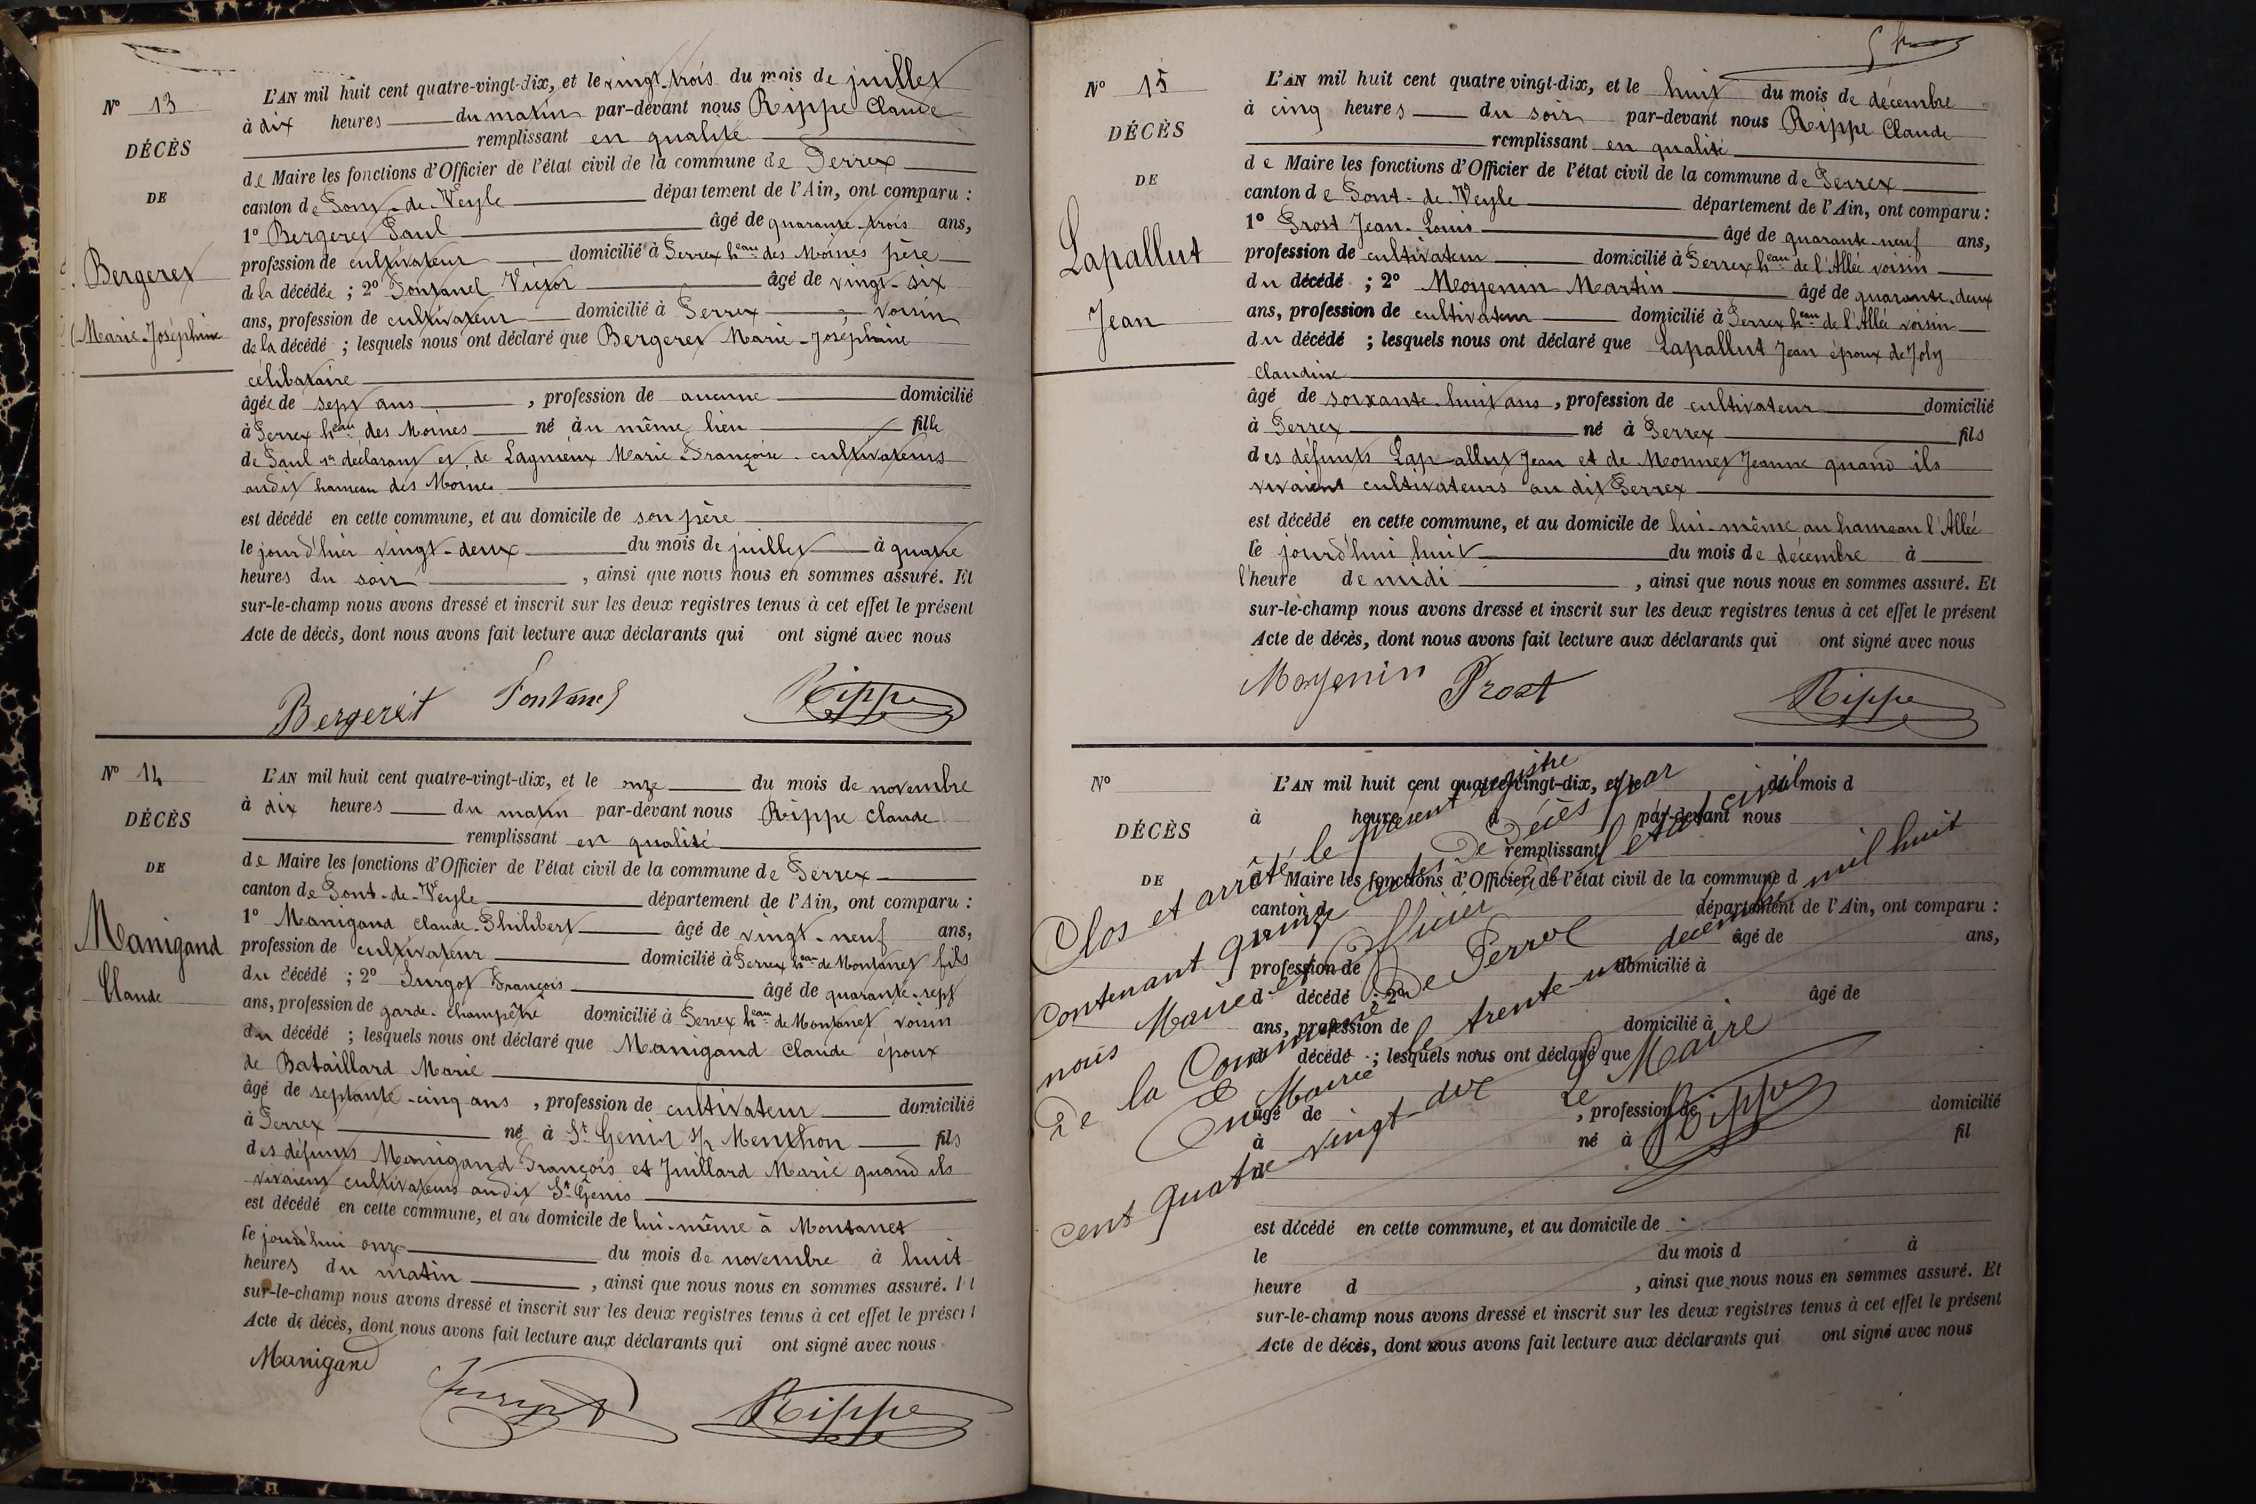 N° 13
DÉCÈS
DE
Bergeret
Marie-Joséphine
L'AN mil huit cent quatre-vingt-dix, et le vingt-trois du mois de juillet
à dix heures du matin par-devant nous Rippe Claude
remplissant en qualité
de Maire les fonctions d'Officier de l'état civil de la commune de Perrex
canton de Pont-de-Veyle département de l'Ain, ont comparu :
1° Bergeret Paul âgé de quarante-trois ans,
profession de cultivateur domicilié à Perrex heau des Moines père
de la décédée ; 2° Fontanel Victor âgé de vingt-six
ans, profession de cultivateur domicilié à Perrex voisin
de la décédé ; lesquels nous ont déclaré que Bergeret Marie-Joséphine
célibataire
âgée de sept ans, profession de aucune domicilié
à Perrex heau des Moines né au même lieu fille
de Paul 1er déclarant et de Lagnieux Marie-Françoise cultivateurs
audit hameau des Moines
est décédé en cette commune, et au domicile de son père
le jour d'hier vingt-deux du mois de juillet à quatre
heures du soir, ainsi que nous nous en sommes assuré. Et
sur-le-champ nous avons dressé et inscrit sur les deux registres tenus à cet effet le présent
Acte de décès, dont nous avons fait lecture aux déclarants qui ont signé avec nous
Bergeret Fontanel Rippe
N° 14
DÉCÈS
DE
Manigand
Claude
L'AN mil huit cent quatre-vingt-dix, et le onze du mois de novembre
à dix heures du matin par-devant nous Rippe Claude
remplissant en qualité
de Maire les fonctions d'Officier de l'état civil de la commune de Perrex
canton de Pont-de-Veyle département de l'Ain, ont comparu :
1° Manigand Claude-Philibert âgé de vingt-neuf ans,
profession de cultivateur domicilié à Perrex heau de Montanet fils
du décédé ; 2° Surgot François âgé de quarante-sept
ans, profession de garde-champêtre domicilié à Perrex heau de Montanet voisin
du décédé ; lesquels nous ont déclaré que Manigand Claude époux
de Bataillard Marie
âgé de septante-cinq ans, profession de cultivateur domicilié
à Perrex né à St Genis s/ Menthon fils
des défunts Manigand François et Juillard Marie quand ils
vivaient cultivateurs audit St Genis
est décédé en cette commune, et au domicile de lui-même à Montanet
le jourd'hui onze du mois de novembre à huit
heures du matin, ainsi que nous nous en sommes assuré. Et
sur-le-champ nous avons dressé et inscrit sur les deux registres tenus à cet effet le présent
Acte de décès, dont nous avons fait lecture aux déclarants qui ont signé avec nous
Manigand Rippe
N° 15
DÉCÈS
DE
Lapallut
Jean
L'AN mil huit cent quatre vingt-dix, et le huit du mois de décembre
à cinq heures du soir par-devant nous Rippe Claude
remplissant en qualité
de Maire les fonctions d'Officier de l'état civil de la commune de Perrex
canton de Pont-de-Veyle département de l'Ain, ont comparu :
1° Prost Jean-Louis âgé de quarante-neuf ans,
profession de cultivateur domicilié à Perrex heau de l'Allée voisin
du décédé ; 2° Moyenin Martin âgé de quarante-deux
ans, profession de cultivateur domicilié à Perrex heau de l'Allée voisin
du décédé ; lesquels nous ont déclaré que Lapallut Jean époux de Joly
Claudine
âgé de soixante-huit ans, profession de cultivateur domicilié
à Perrex né à Perrex fils
des défunts Lapallut Jean et de Monnet Jeanne quand ils
vivaient cultivateurs au dit Perrex
est décédé en cette commune, et au domicile de lui-même au hameau l'Allée
le jourd'hui huit du mois de décembre à
l'heure de midi, ainsi que nous nous en sommes assuré. Et
sur-le-champ nous avons dressé et inscrit sur les deux registres tenus à cet effet le présent
Acte de décès, dont nous avons fait lecture aux déclarants qui ont signé avec nous
Moyenin Prost Rippe
N°
DÉCÈS
DE
L'AN mil huit cent quatre-vingt-dix, et le du mois d
à heure d par-devant nous
remplissant
d Maire les fonctions d'Officier de l'état civil de la commune d
canton d département de l'Ain, ont comparu :
âgé de ans,
profession de domicilié à
d décédé ; 2° âgé de
ans, profession de domicilié à
d décédé ; lesquels nous ont déclaré que
âgé de , profession de domicilié
à né à fil
d
est décédé en cette commune, et au domicile de
le du mois d à
heure d , ainsi que nous nous en sommes assuré. Et
sur-le-champ nous avons dressé et inscrit sur les deux registres tenus à cet effet le présent
Acte de décès, dont nous avons fait lecture aux déclarants qui ont signé avec nous
Clos et arrêté le présent registre
contenant quinze actes de décès par
nous Maire et Officier de l'état civil
de la Commune de Perrex
En Mairie le trente-un décembre mil huit
cent quatre-vingt-dix
Le Maire
Rippe